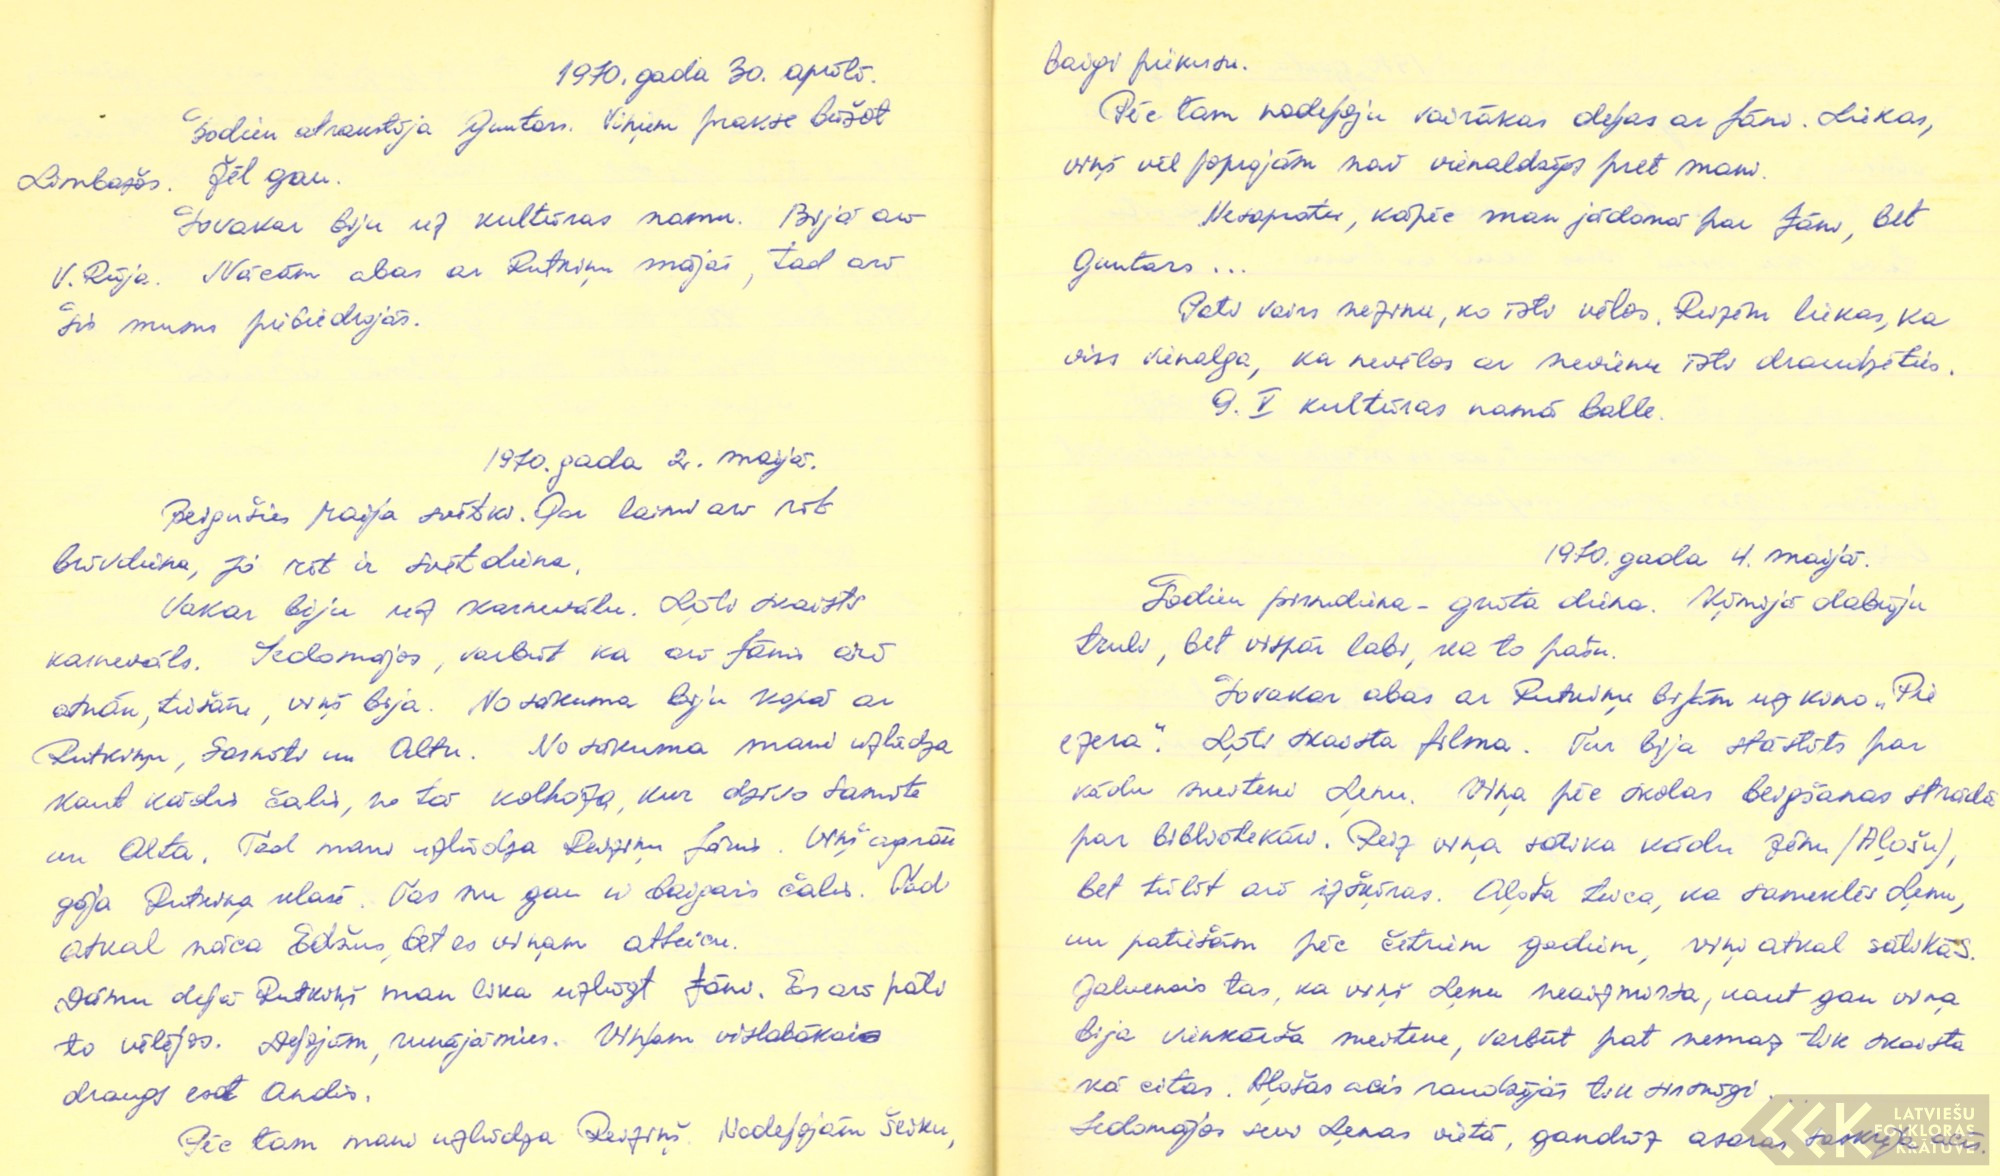 1970. gada 30. aprīlī.
Šodien atrakstīja Guntars. Viņiem prakse būšot
Limbažos. Žēl gan.
Šovakar biju uz kultūras namu. Bija arī
V. Rūja. Nācām abas ar Rutkiņu mājās, tad arī
šis mums piebiedrojās.
1970. gada 2. maijā.
Beigušies Maija svētki. Par laimi arī rīt
brīvdiena, jo rīt ir svētdiena.
Vakar biju uz karnevālu. Ļoti skaists
karnevāls. Iedomājos, varbūt ka arī Jānis
atnāk, tiešām, viņš bija. No sākuma biju kopā ar
Rutkiņu, Sarmīti un Altu. No sākuma mani uzlūdza
kaut kāds čalis, no tā kolhoza, kur dzīvo Sarmīte
un Alta. Tad mani uzlūdza Reiziņu Jānis. Viņš agrāk
gāja Rutkiņa klasē. Tas nu gan ir baigais čalis. Tad
atkal nāca Edžus, bet es viņam atteicu.
Dāmu dejā Rutkiņš man lika uzlūgt Jāni. Es arī pati
to vēlējos. Dejojām, runājāmies. Viņam vislabākais
draugs esot Andis.
Pēc tam mani uzlūdza Reiziņš. Nodejojām šeiku,
baigi piekusu.
Pēc tam nodejoju vairākas dejas ar Jāni. Liekas,
viņš vēl joprojām nav vienaldzīgs pret mani.
Nesaprotu, kāpēc man jādomā par Jāni, bet
Guntars ...
Pati vairs nezinu, ko īsti vēlos. Reizēm liekas, ka
viss vienalga, ka nevēlos ar nevienu īsti draudzēties.
9. V kultūras namā balle.
1970. gada 4. maijā.
Šodien pirmdiena - grūta diena. Ķīmijā dabūju
truli, bet vispār labi, ka to pašu.
Šovakar abas ar Rutkiņu bijām uz kino „Pie
ezera". Ļoti skaista filma. Tur bija stāstīts par
kādu meiteni Ļenu. Viņa pēc skolas beigšanas strādā
par bibliotekāri. Reiz viņa satika kādu zēnu /Aļošu/,
bet tūlīt arī izšķīras. Aļoša teica, ka sameklēs Ļenu,
un patiešām pēc četriem gadiem, viņi atkal satikās.
Galvenais tas, ka viņš Ļenu neaizmirsa, kaut gan viņa
bija vienkārša meitene, varbūt pat nemaz tik skaista
kā citas. Aļošas acis raudzījās tik sirsnīgi ...
Iedomājos sevi Ļenas vietā, gandrīz asaras saskrēja acīs.
LATVIEŠU
FOLKLORAS
KRĀTUVE